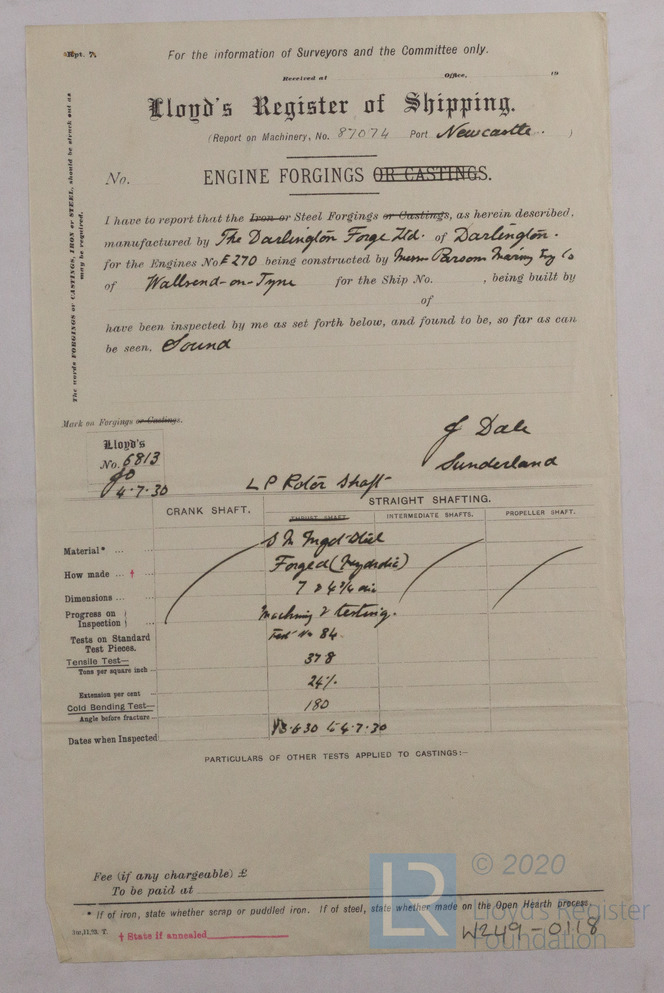 Rpt. 7.
For the information of Surveyors and the Committee only.
Received at Office, 19
Lloyd's Register of Shipping.
(Report on Machinery, No. 87074 Port Newcastle. )
No. ENGINE FORGINGS OR CASTINGS.
I have to report that the Iron or Steel Forgings or Castings, as herein described,
manufactured by The Darlington Forge Ltd. of Darlington.
for the Engines No E270 being constructed by Messrs Parsons Marine Eng Co
of Wallsend-on-Tyne for the Ship No. , being built by
of
have been inspected by me as set forth below, and found to be, so far as can
be seen, Sound
The words FORGINGS or CASTINGS, IRON or STEEL, should be struck out as
may be required.
Mark on Forgings or Castings.
Lloyd's
No. 6813
4.7.30
J Dale
Sunderland
L P Rotor Shaft
CRANK SHAFT. STRAIGHT SHAFTING.
THRUST SHAFT. INTERMEDIATE SHAFTS. PROPELLER SHAFT.
Material* ... S M Ingot Steel
How made ... † Forged (Hydraulic)
Dimensions ... 7 & 4 3/4 dia
Progress on Inspection Machining & testing.
Tests on Standard Test Pieces. Test No 84
Tensile Test—
Tons per square inch 37.8
Extension per cent 24%
Cold Bending Test—
Angle before fracture 180
Dates when Inspected 13.6.30 to 4.7.30
PARTICULARS OF OTHER TESTS APPLIED TO CASTINGS:—
Fee (if any chargeable) £
To be paid at
* If of iron, state whether scrap or puddled iron. If of steel, state whether made on the Open Hearth process.
† State if annealed
LR
© 2020
Lloyd's Register
Foundation
W249-0118